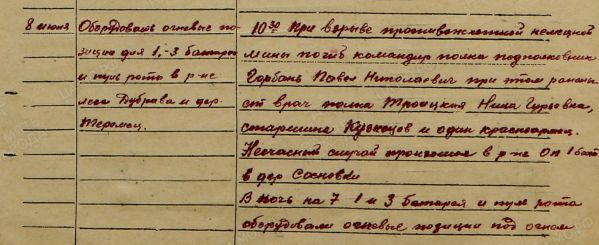 8 июня
Оборудовать огневые по-
зиции для 1, 3 батареи
и пульрота в р-не
леса Дубрава и дер.
10³⁰ При взрыве противопехотной немецкой
мины погиб командир полка подполковник
Горбань Павел Николаевич при этом ранены
ст врач полка Троицкая Нина Гурьевна,
старшина Кузнецов и один красноармеец.
Несчастный случай произошел в р-не ОП 1 бат
в дер Сосновки
В ночь на 7 1 и 3 батарея и пул рота
оборудовали огневые позиции под огнем